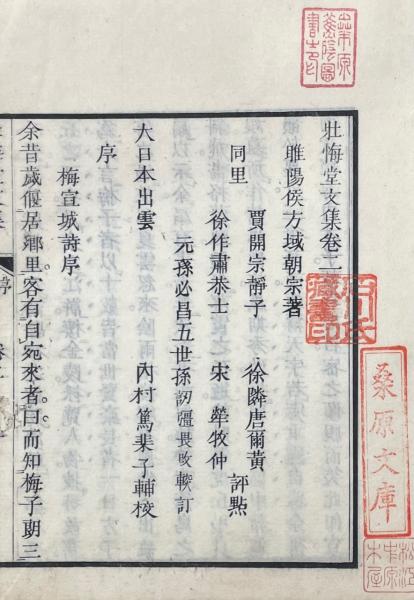 壯悔堂文集卷二
睢陽侯方域朝宗著
賈開宗靜子 徐隣唐爾黃
同里 評點
徐作肅恭士 宋犖牧仲
元孫必昌五世孫 訒疆畏攺較訂
大日本出雲 內村篤棐子輔校
序
梅宣城詩序
余昔歲偃居鄉里。客有自宛來者。曰。而知梅子朗三
桑原文庫
藏書印
松江
木屋